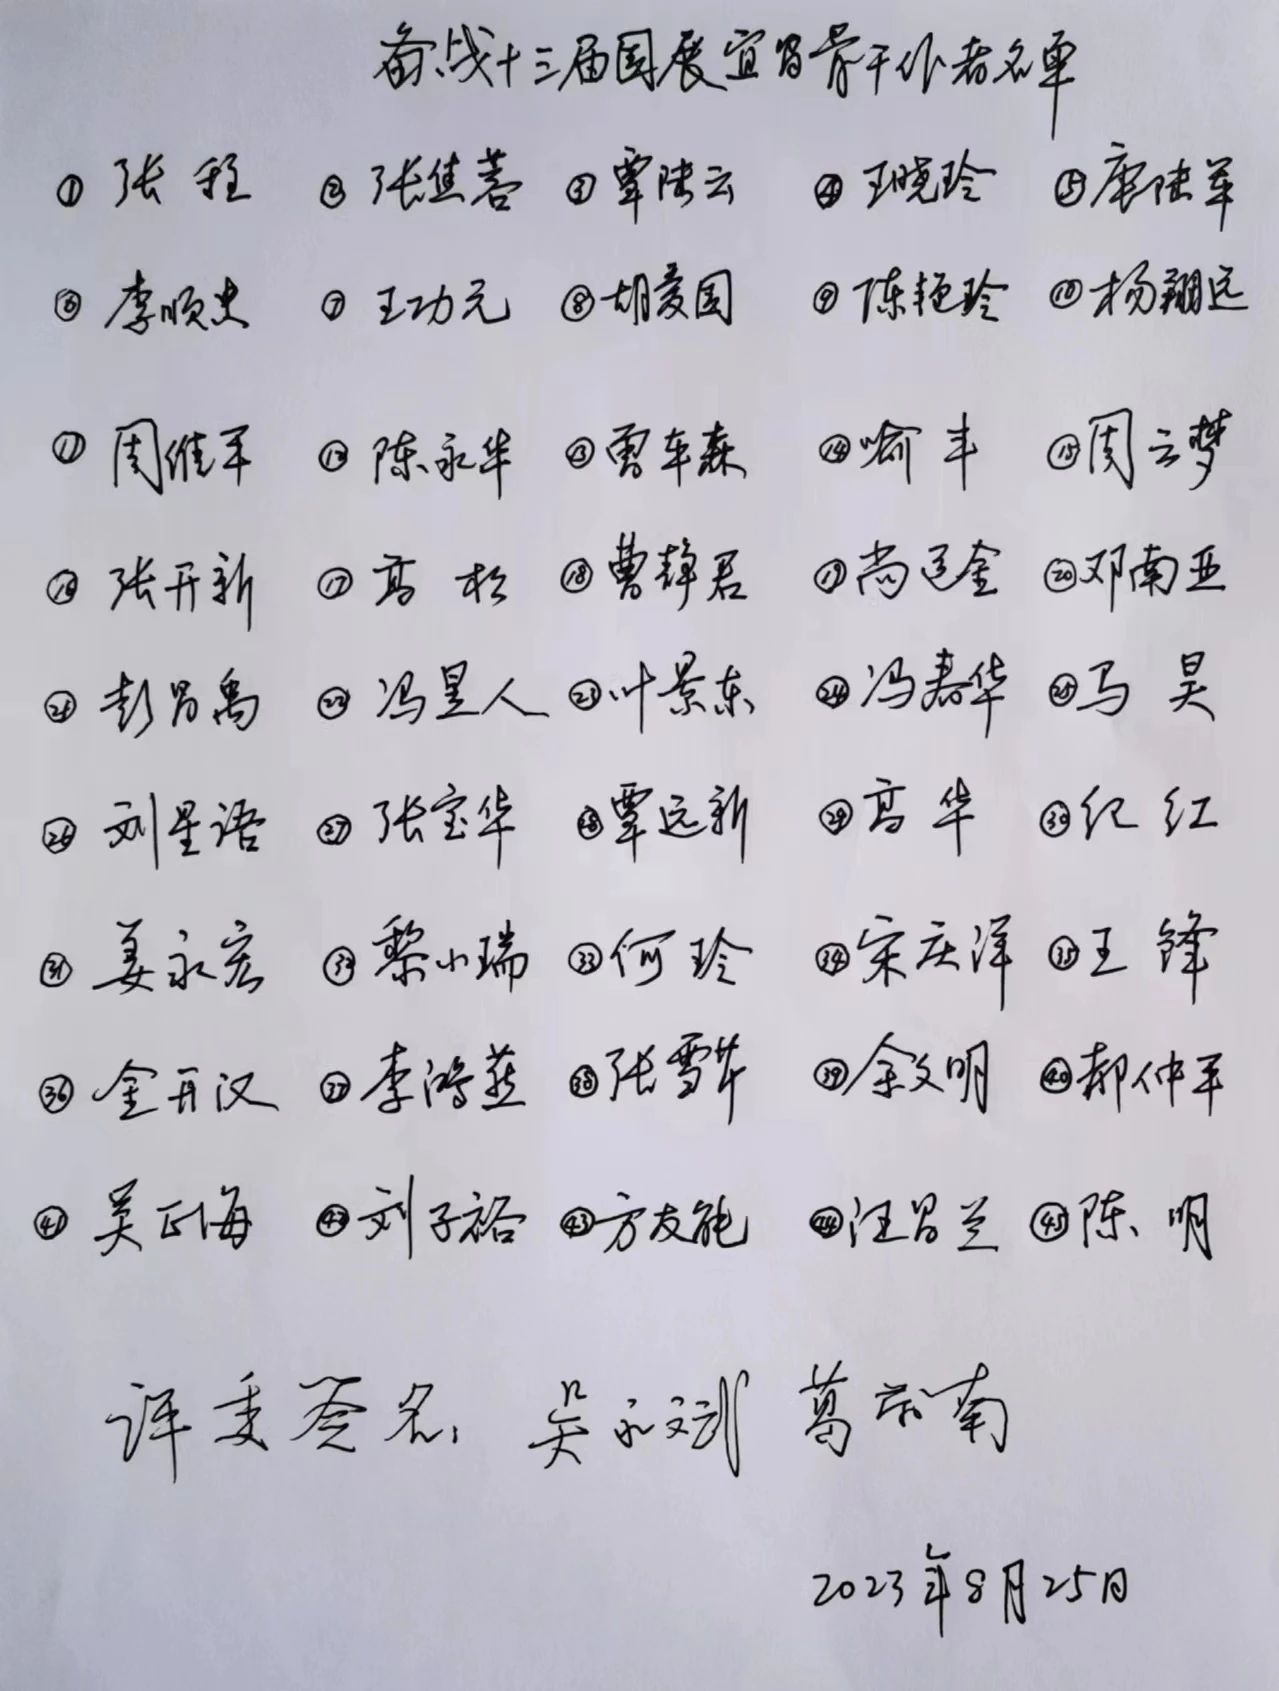 备战十三届国展宜昌骨干作者名单
① 张程 ② 张佳蓉 ③ 覃陆云 ④ 王晓玲 ⑤ 唐陆军
⑥ 李顺忠 ⑦ 王功元 ⑧ 胡爱国 ⑨ 陈艳玲 ⑩ 杨翔远
⑪ 周维军 ⑫ 陈永华 ⑬ 曹车森 ⑭ 喻丰 ⑮ 周云梦
⑯ 张开新 ⑰ 高松 ⑱ 曹静君 ⑲ 尚运金 ⑳ 邓南亚
㉑ 彭昌禹 ㉒ 冯昱人 ㉓ 叶景东 ㉔ 冯春华 ㉕ 马昊
㉖ 刘星语 ㉗ 张宝华 ㉘ 覃远新 ㉙ 高华 ㉚ 纪红
㉛ 姜永宏 ㉜ 黎小瑞 ㉝ 何玲 ㉞ 宋庆洋 ㉟ 王锋
㊱ 金开汉 ㊲ 李鸿燕 ㊳ 张雪芹 ㊴ 余文明 ㊵ 郝仲平
㊶ 吴正海 ㊷ 刘子裕 ㊸ 方友能 ㊹ 汪昌兰 ㊺ 陈明
评委签名: 吴永斌 葛南
2023年8月25日